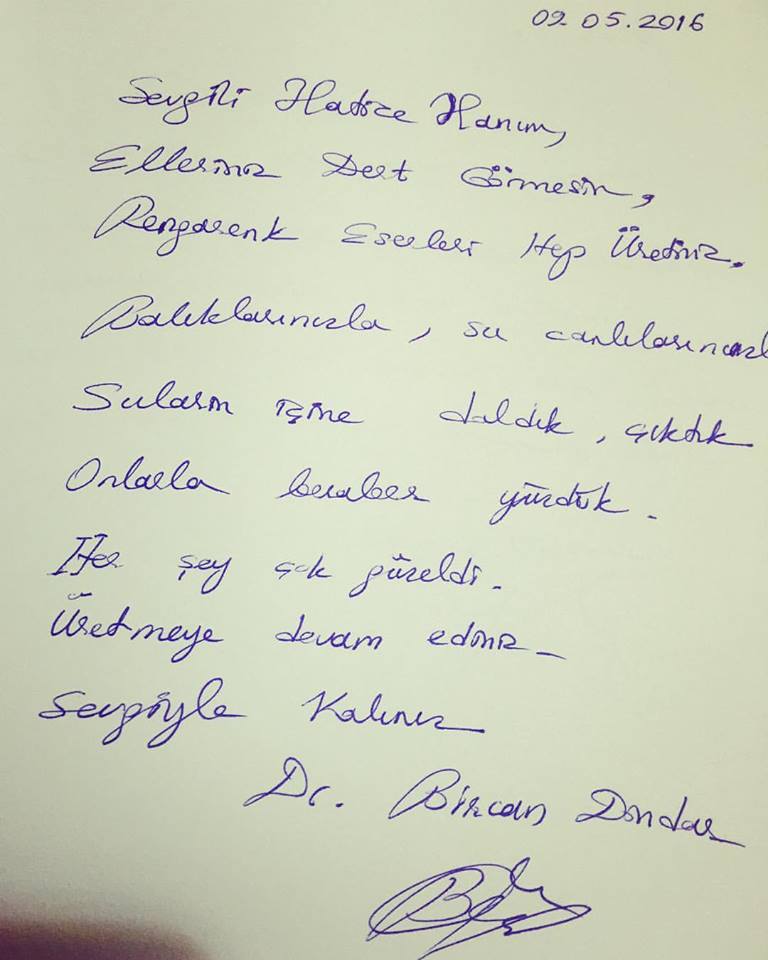 09.05.2016
Sevgili Hatice Hanım,
Elleriniz Dert Görmesin,
Rengarenk Eserleri Hep Üretiniz.
Balıklarınızla, su canlılarınızl
Suların içine daldık, çıktık
Onlarla beraber yüzdük.
Her şey çok güzeldi.
Üretmeye devam ediniz
Sevgiyle Kalınız
Dr. Bircan Dindar